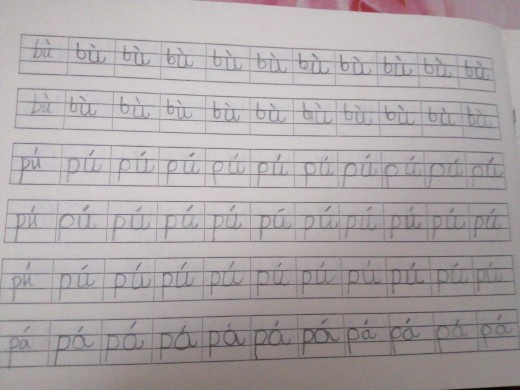 bù bù bù bù bù bù bù bù bù bù bù
bù bù bù bù bù bù bù bù bù bù bù
pú pú pú pú pú pú pú pú pú pú pú
pú pú pú pú pú pú pú pú pú pú pú
pú pú pú pú pú pú pú pú pú pú pú
pá pá pá pá pá pá pá pá pá pá pá